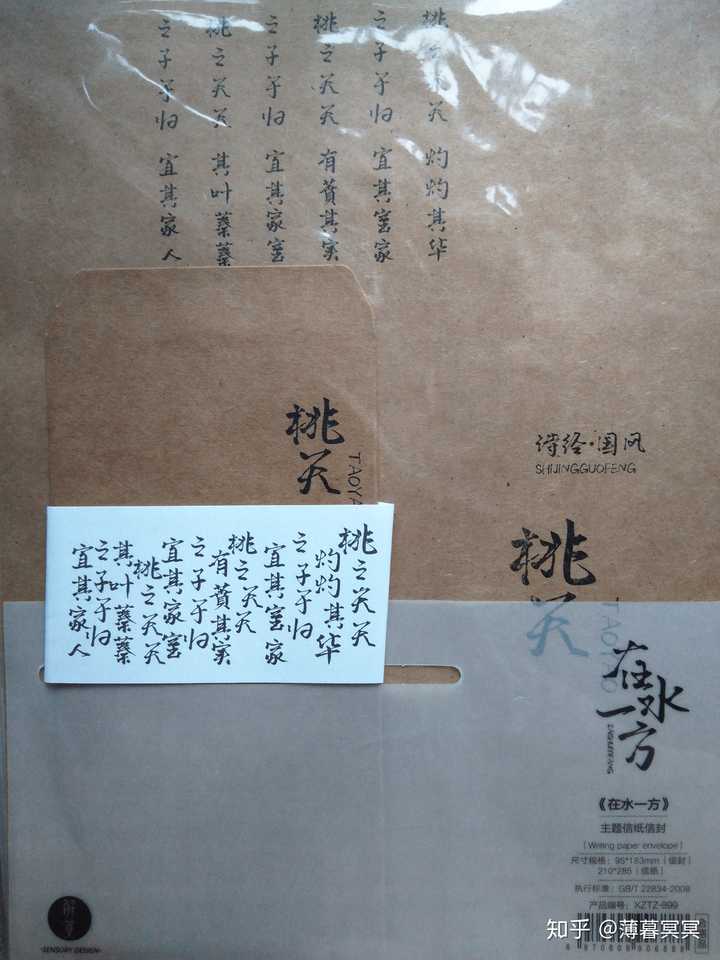 桃之夭夭 灼灼其华
之子于归 宜其室家
桃之夭夭 有蕡其实
之子于归 宜其家室
桃之夭夭 其叶蓁蓁
之子于归 宜其家人
桃夭
TAOYA
诗经·国风
SHIJINGGUOFENG
桃夭
TAOYAO
桃之夭夭
灼灼其华
之子于归
宜其室家
桃之夭夭
有蕡其实
之子于归
宜其家室
桃之夭夭
其叶蓁蓁
之子于归
宜其家人
在水一方
ZAISHUIYIFANG
《在水一方》
主题信纸信封
[Writing paper envelope]
尺寸规格：95*183mm（信封）
210*285（信纸）
执行标准：GB/T 22834-2008
产品编号：XZTZ-899
-SENSORY DESIGN-
知乎 @薄暮冥冥